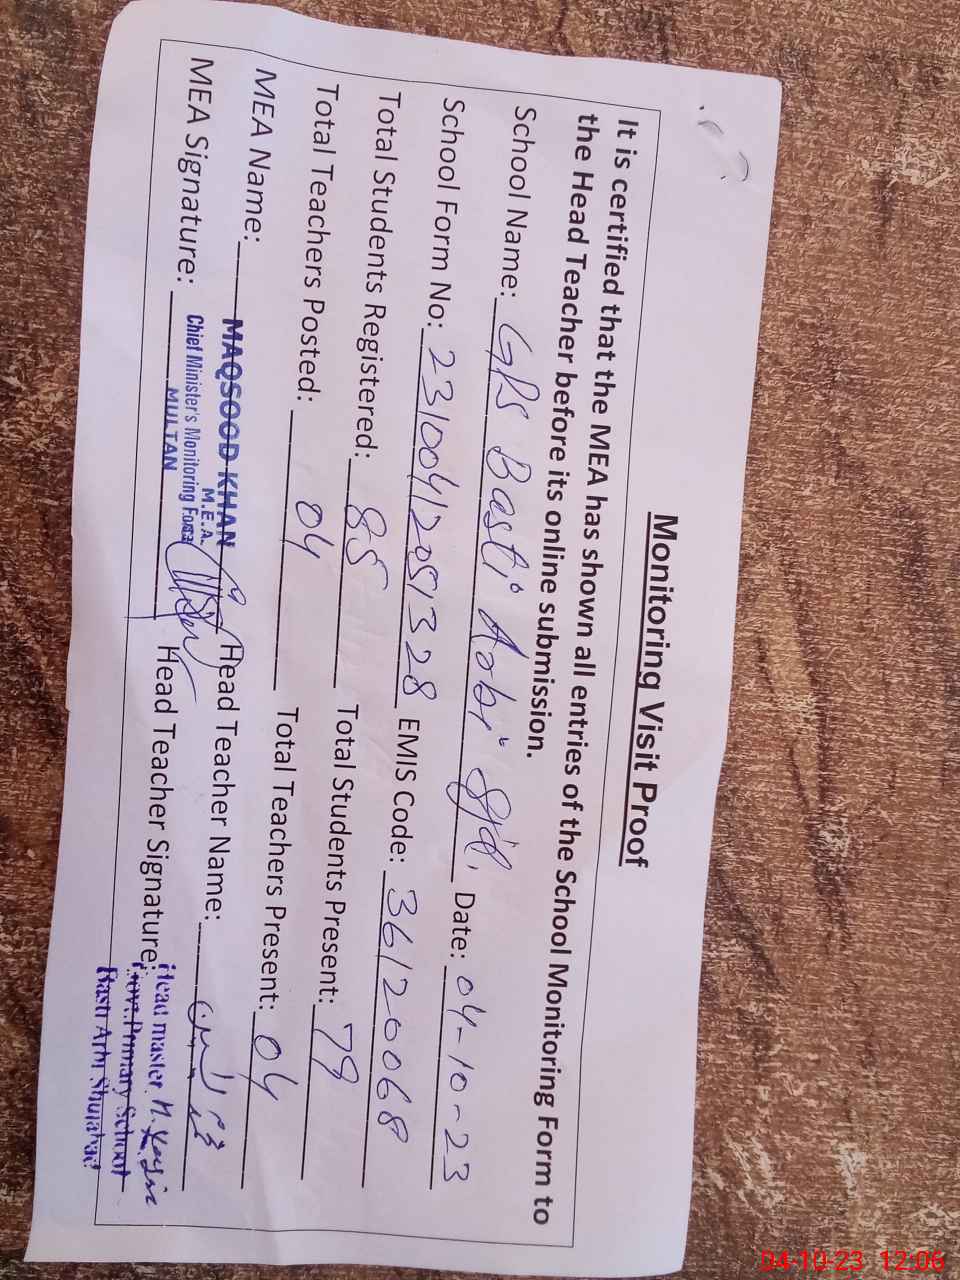 Monitoring Visit Proof
It is certified that the MEA has shown all entries of the School Monitoring Form to
the Head Teacher before its online submission.
School Name: GPS Basti Aobi Sjd. Date: 04-10-23
School Form No: 231004120513 28 EMIS Code: 36120068
Total Students Registered: 85 Total Students Present: 79
Total Teachers Posted: 04 Total Teachers Present: 04
MEA Name: MAQSOOD KHAN Head Teacher Name:
M.E.A.
Chief Minister's Monitoring Force
MULTAN
MEA Signature: Head Teacher Signature:
Head master M. Yasin
Govt. Primary School
Basti Arbi Shujabad
04-10-23 12:06